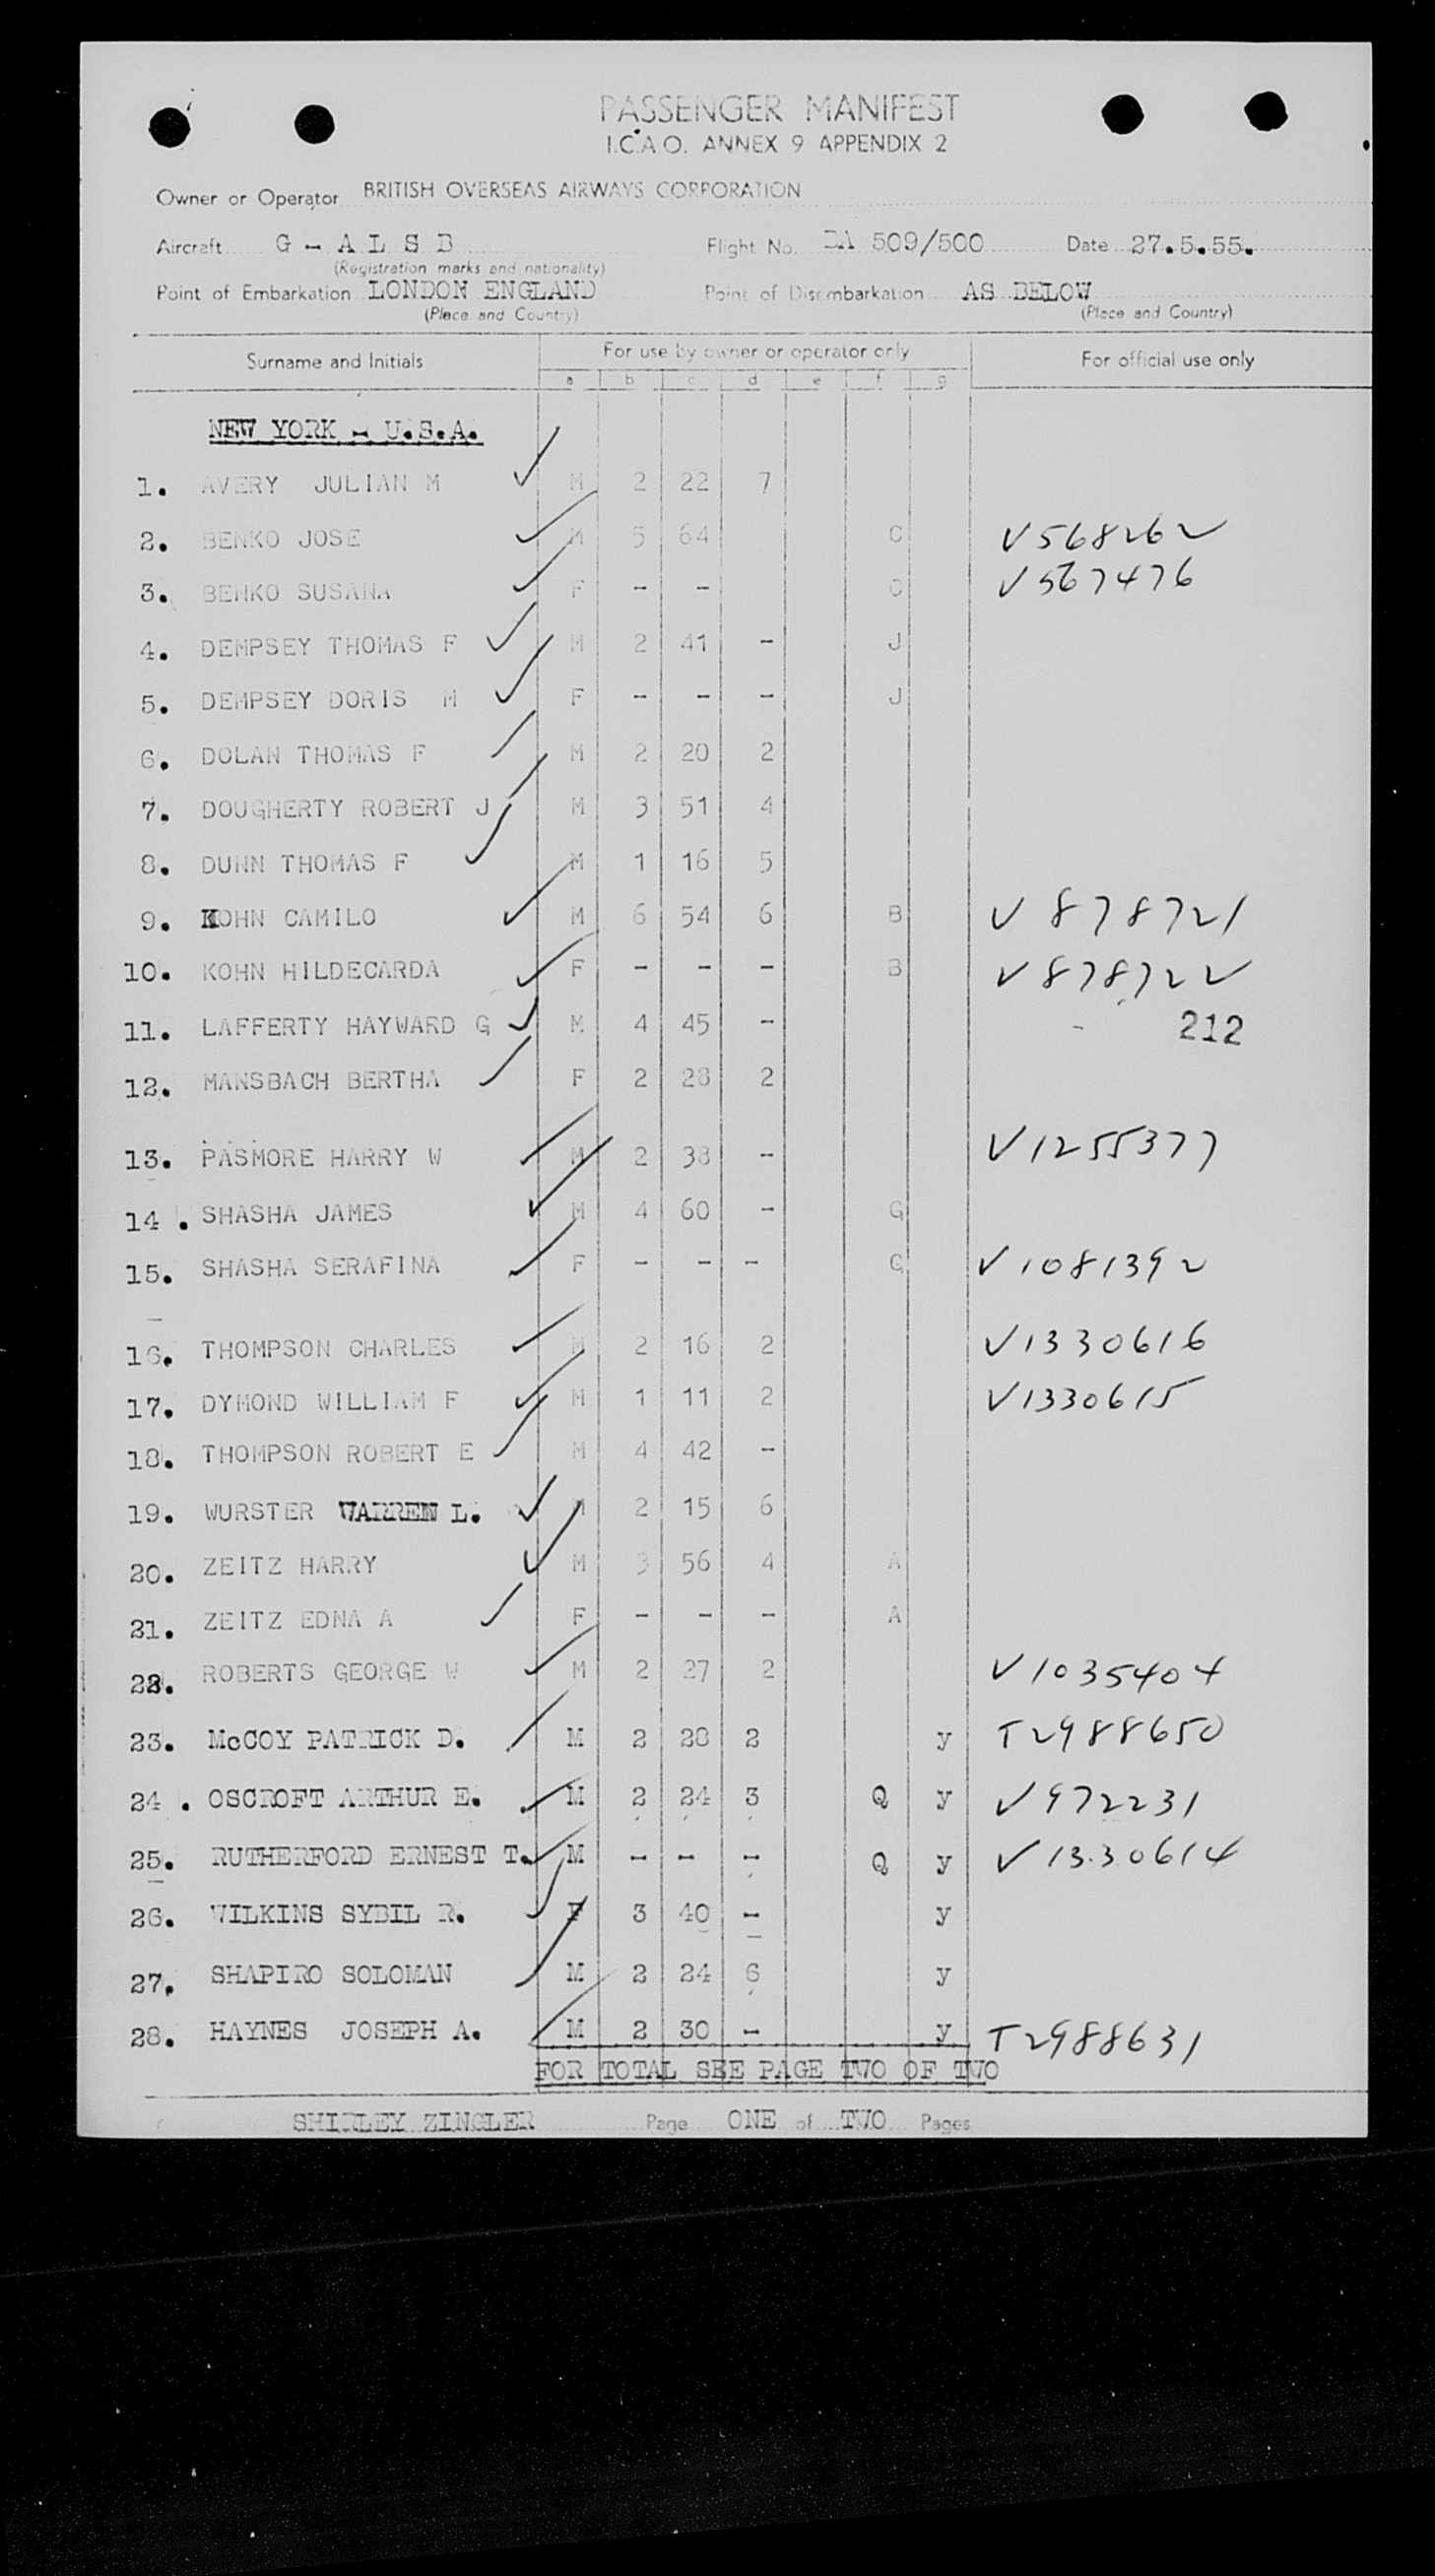 PASSENGER MANIFEST
I.C.A.O. ANNEX 9 APPENDIX 2
Owner or Operator BRITISH OVERSEAS AIRWAYS CORPORATION
Aircraft G - A L S B Flight No. BA 509/500 Date 27.5.55.
(Registration marks and nationality)
Point of Embarkation LONDON ENGLAND Point of Disembarkation AS BELOW
(Place and Country) (Place and Country)
Surname and Initials For use by owner or operator only For official use only
a b c d e f g
NEW YORK - U.S.A.
1. AVERY JULIAN M M 2 22 7
2. BENKO JOSE M 5 64 C V568262
3. BENKO SUSANA F - - C V567476
4. DEMPSEY THOMAS F M 2 41 - J
5. DEMPSEY DORIS M F - - - J
6. DOLAN THOMAS F M 2 20 2
7. DOUGHERTY ROBERT J M 3 51 4
8. DUNN THOMAS F M 1 16 5
9. KOHN CAMILO M 6 54 6 B V878721
10. KOHN HILDECARDA F - - - B V878722
11. LAFFERTY HAYWARD G M 4 45 - 212
12. MANSBACH BERTHA F 2 28 2
13. PASMORE HARRY W M 2 38 - V1255377
14. SHASHA JAMES M 4 60 - G
15. SHASHA SERAFINA F - - - G V1081392
16. THOMPSON CHARLES M 2 16 2 V1330616
17. DYMOND WILLIAM F M 1 11 2 V1330615
18. THOMPSON ROBERT E M 4 42 -
19. WURSTER WARREN L. M 2 15 6
20. ZEITZ HARRY M 3 56 4 A
21. ZEITZ EDNA A F - - - A
22. ROBERTS GEORGE W M 2 27 2 V1035404
23. McCOY PATRICK D. M 2 28 2 y T2988650
24. OSCROFT ARTHUR E. M 2 24 3 Q y V972231
25. RUTHERFORD ERNEST T. M - - - Q y V1330614
26. WILKINS SYBIL R. F 3 40 - y
27. SHAPIRO SOLOMAN M 2 24 6 y
28. HAYNES JOSEPH A. M 2 30 - y T2988631
FOR TOTAL SEE PAGE TWO OF TWO
SHIRLEY ZINGLER Page ONE of TWO Pages